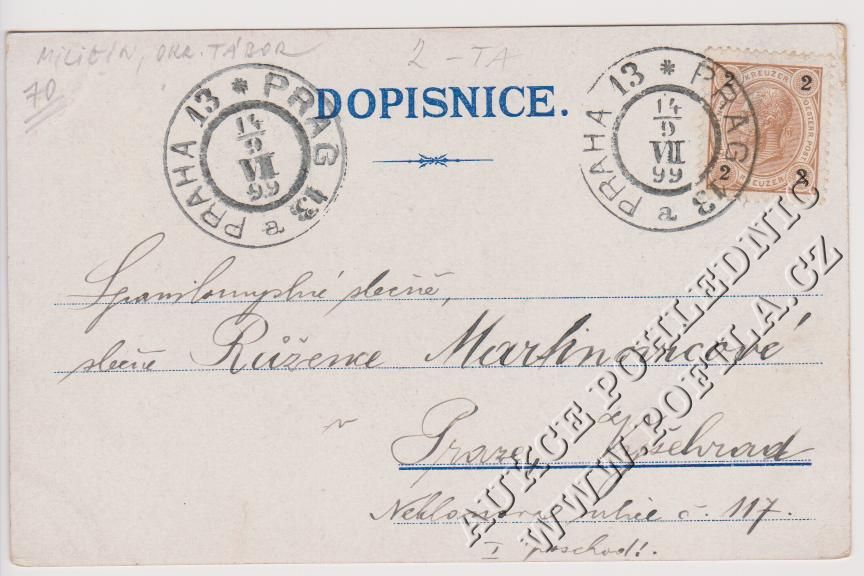 MILIČÍN, OKR. TÁBOR
2 - TA
70
DOPISNICE.
PRAHA 13 * PRAG 13 a
14/9
VII
99
PRAHA 13 * PRAG 13 a
14/9
VII
99
2 KREUZER 2
OESTERR. POST
2 KREUZER 2
Spanilomyslné slečně,
slečně Růžence Martinovicové
v
Praze Vyšehrad
Neklanova ulice č. 117.
I poschodí.
AUKCE POHLEDNIC
WWW.POFILA.CZ